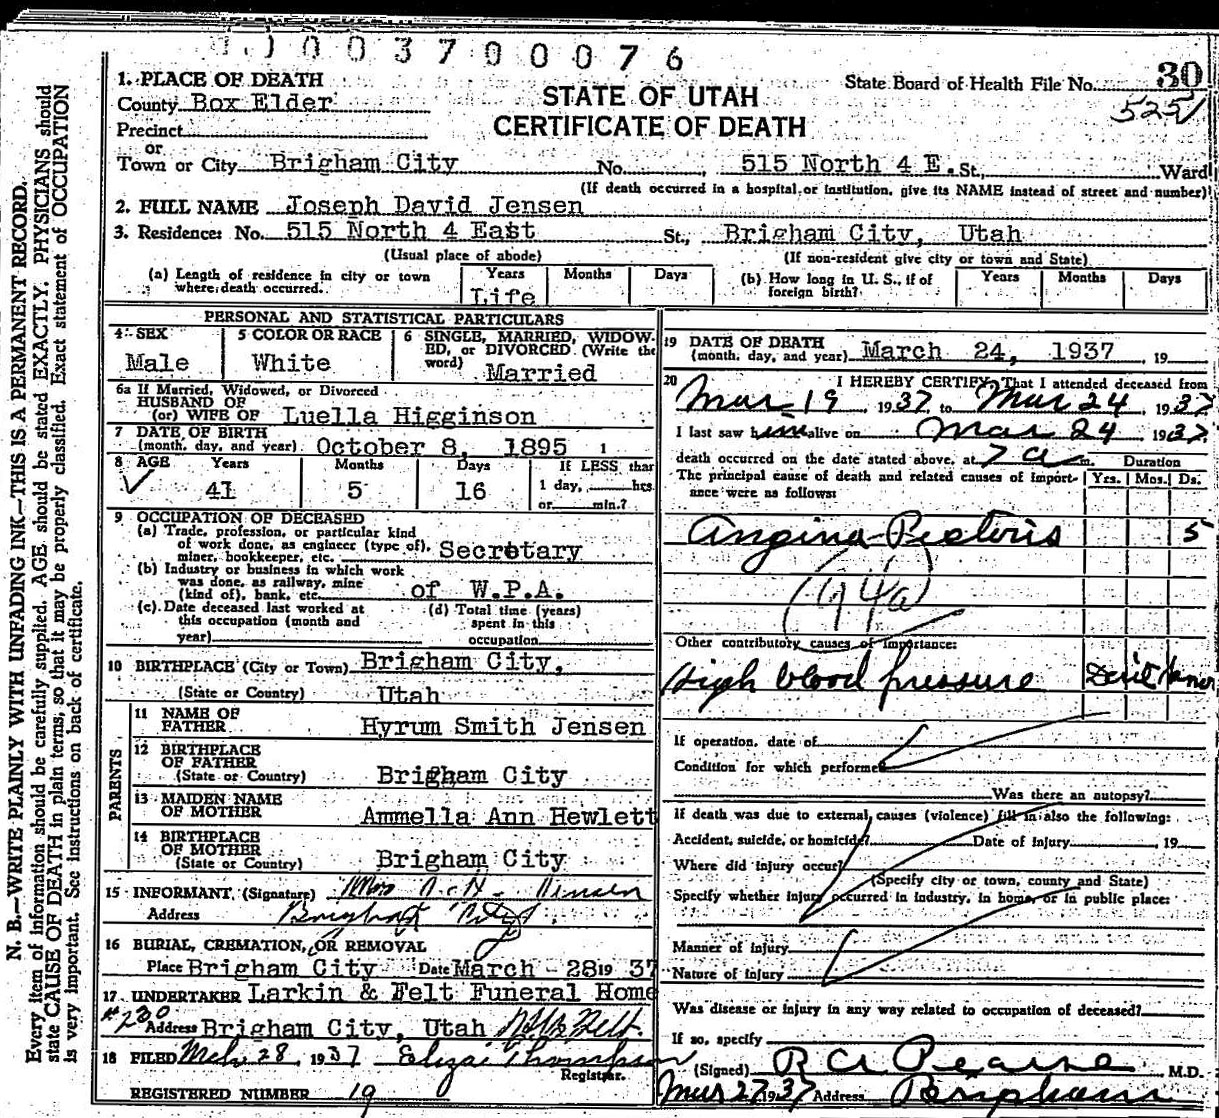 0 0 3 7 0 0 0 7 6
1. PLACE OF DEATH
County Box Elder
STATE OF UTAH
CERTIFICATE OF DEATH
State Board of Health File No. 30
525
Precinct
or
Town or City Brigham City No. 515 North 4 E. St., Ward
(If death occurred in a hospital or institution, give its NAME instead of street and number)
2. FULL NAME Joseph David Jensen
3. Residence: No. 515 North 4 East St., Brigham City, Utah
(Usual place of abode) (If non-resident give city or town and State)
(a) Length of residence in city or town where death occurred. Years Life Months Days
(b) How long in U. S., if of foreign birth? Years Months Days
PERSONAL AND STATISTICAL PARTICULARS
4. SEX Male
5 COLOR OR RACE White
6 SINGLE, MARRIED, WIDOWED, or DIVORCED (Write the word) Married
6a If Married, Widowed, or Divorced
HUSBAND OF
(or) WIFE OF Luella Higginson
7 DATE OF BIRTH
(month, day, and year) October 8, 1895
8 AGE Years 41 Months 5 Days 16
If LESS than
1 day, hrs.
or min.?
9 OCCUPATION OF DECEASED
(a) Trade, profession, or particular kind
of work done, as engineer (type of),
miner, bookkeeper, etc. Secretary
(b) Industry or business in which work
was done, as railway, mine
(kind of), bank, etc. of W.P.A.
(c) Date deceased last worked at
this occupation (month and
year)
(d) Total time (years)
spent in this
occupation
10 BIRTHPLACE (City or Town) Brigham City,
(State or Country) Utah
PARENTS
11 NAME OF
FATHER Hyrum Smith Jensen
12 BIRTHPLACE
OF FATHER
(State or Country) Brigham City
13 MAIDEN NAME
OF MOTHER Ammella Ann Hewlett
14 BIRTHPLACE
OF MOTHER
(State or Country) Brigham City
15 INFORMANT, (Signature) Mrs
Address Brigham City.
16 BURIAL, CREMATION, OR REMOVAL
Place Brigham City Date March - 28 19 37
17 UNDERTAKER Larkin & Felt Funeral Home
#230
Address Brigham City, Utah
18 FILED Mch. 28, 1937 Eliza Thompson
Registrar.
REGISTERED NUMBER 19
19 DATE OF DEATH
(month, day, and year) March 24, 1937, 19
20 I HEREBY CERTIFY, That I attended deceased from
Mar 19, 1937 to Mar 24, 1937
I last saw him alive on Mar 24 1937
death occurred on the date stated above, at 7 a m. Duration
The principal cause of death and related causes of importance were as follows: Yrs. Mos. Ds.
Angina Pectoris 5
(94a)
Other contributory causes of importance:
High blood pressure Don't know
If operation, date of
Condition for which performed
Was there an autopsy?
If death was due to external causes (violence) fill in also the following:
Accident, suicide, or homicide? Date of Injury, 19
Where did injury occur?
(Specify city or town, county and State)
Specify whether injury occurred in industry, in home, or in public place:
Manner of injury
Nature of injury
Was disease or injury in any way related to occupation of deceased?
If so, specify
(Signed) R A Pearse M.D.
Mar 27 1937 Address Brigham
N. B.—WRITE PLAINLY WITH UNFADING INK—THIS IS A PERMANENT RECORD.
Every item of information should be carefully supplied. AGE should be stated EXACTLY. PHYSICIANS should
state CAUSE OF DEATH in plain terms, so that it may be properly classified. Exact statement of OCCUPATION
is very important. See instructions on back of certificate.